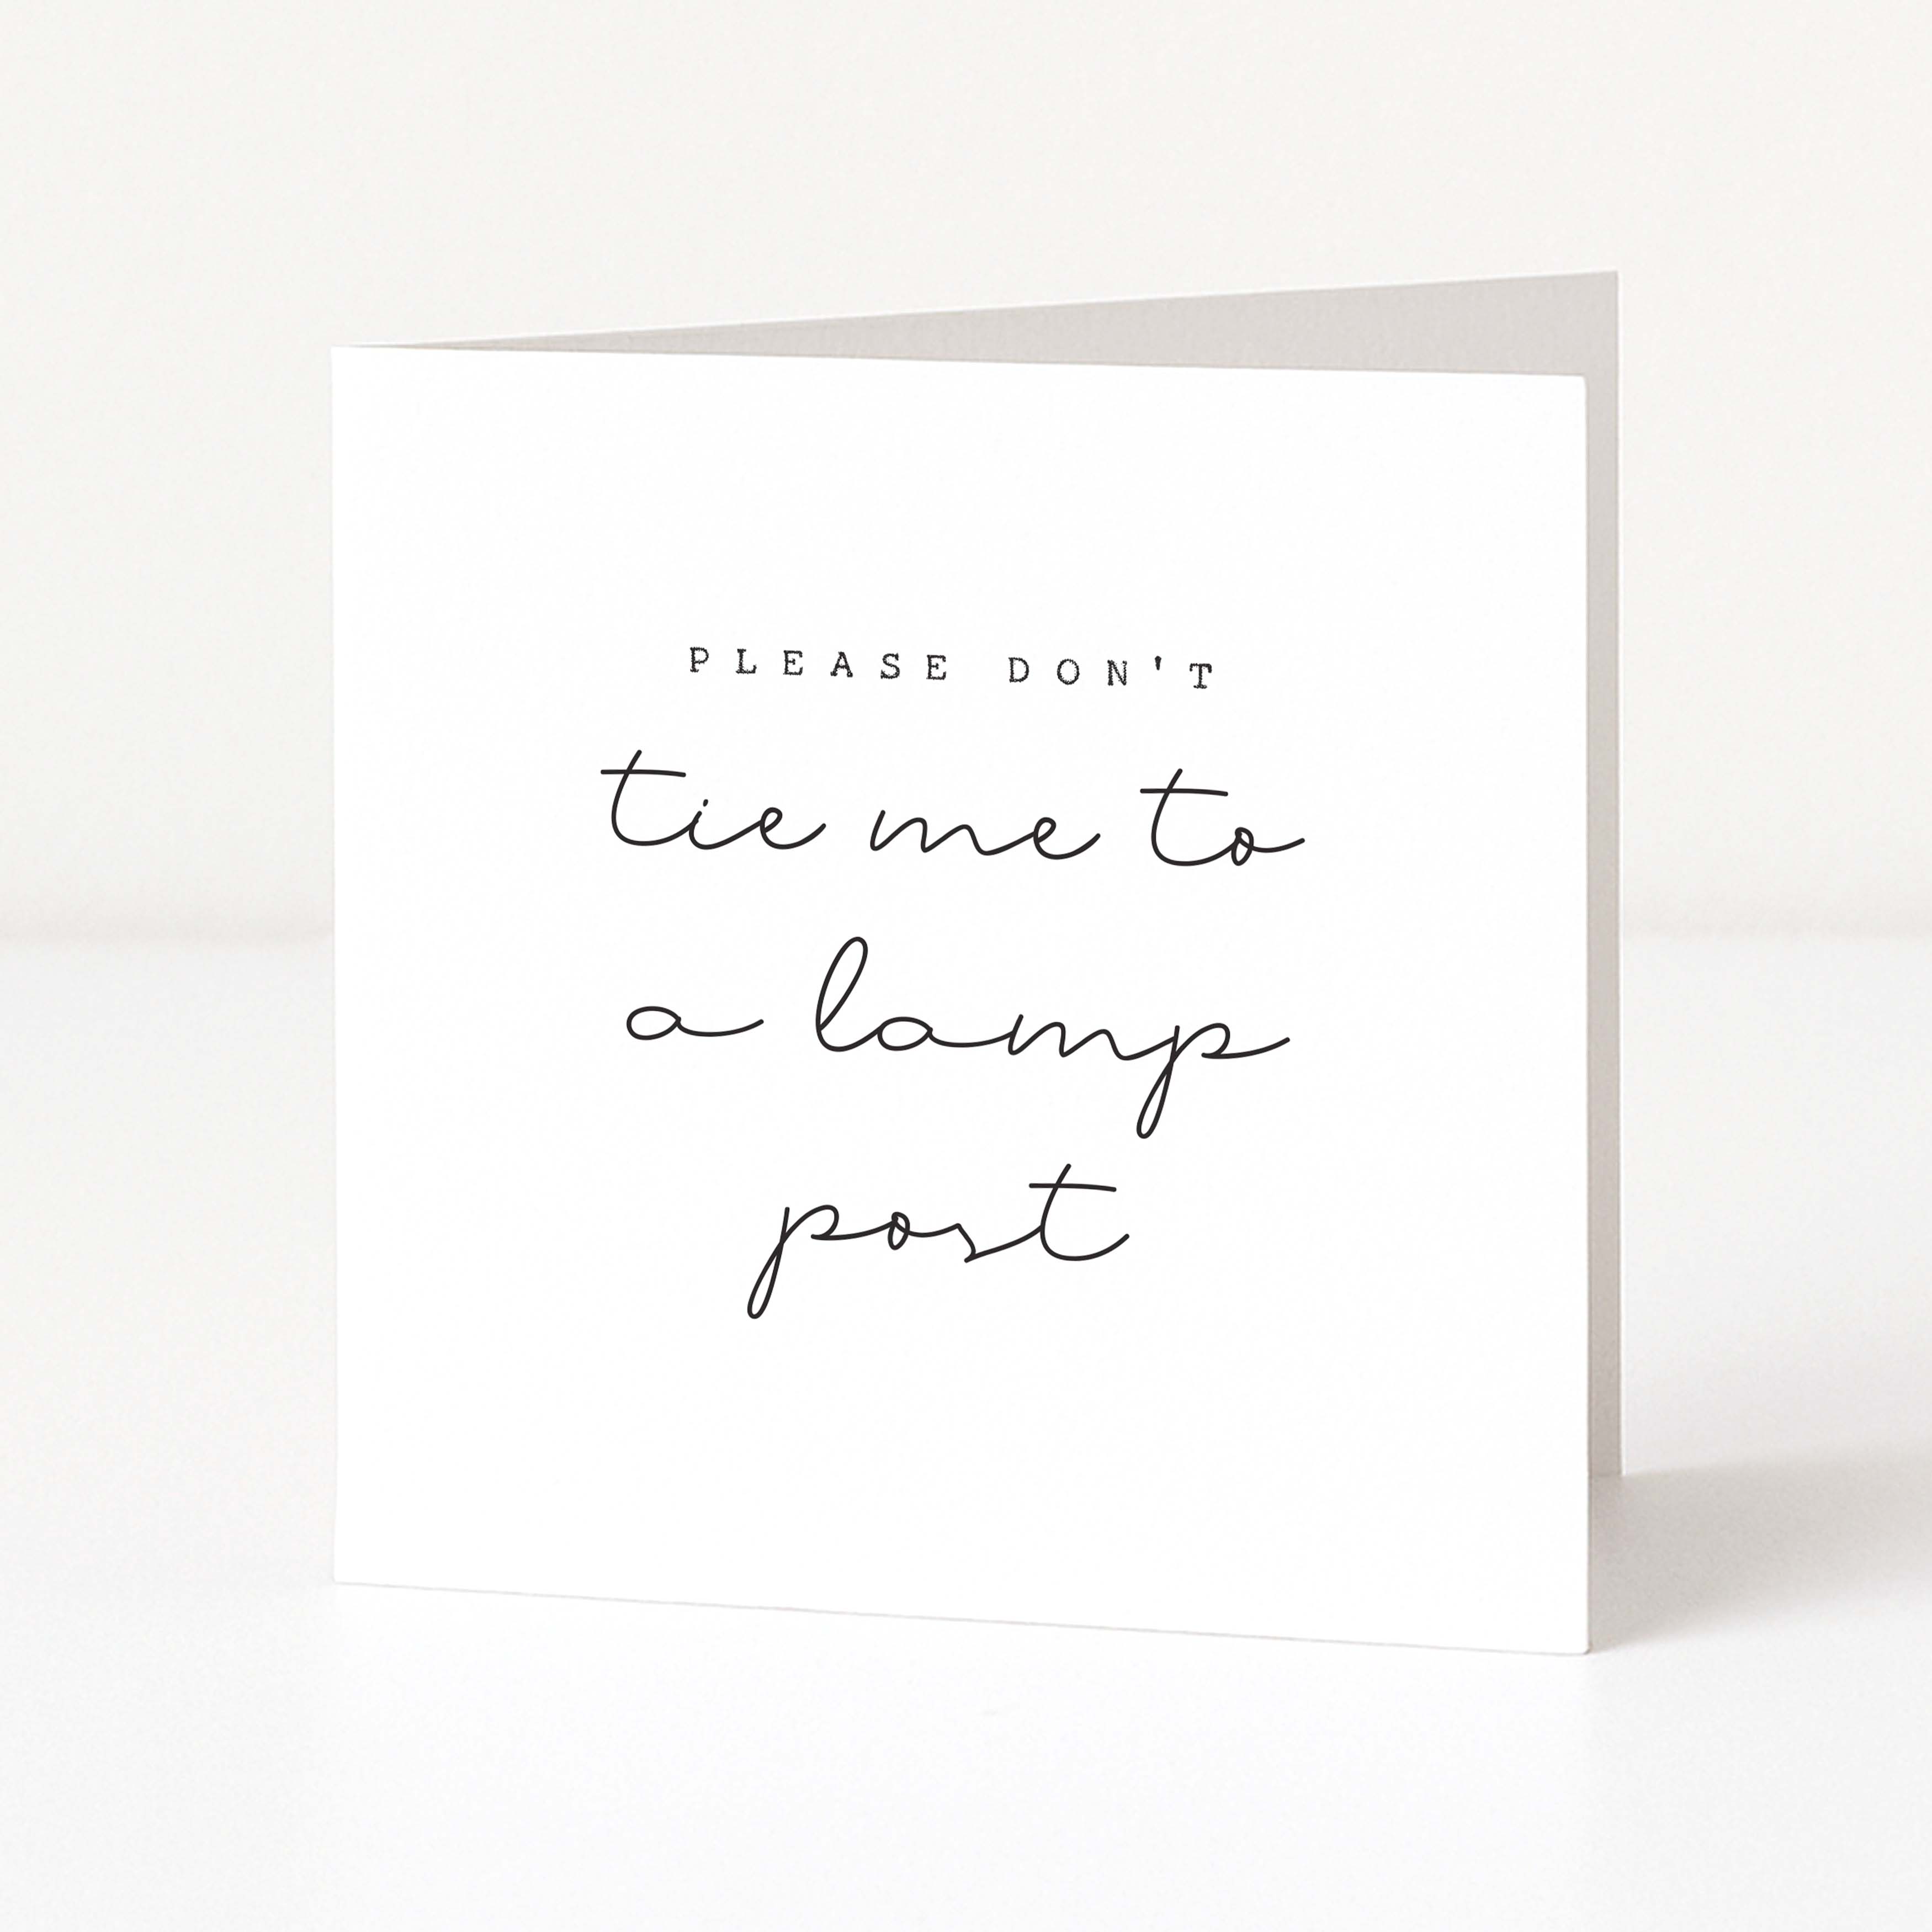 PLEASE DON'T
tie me to
a lamp
post